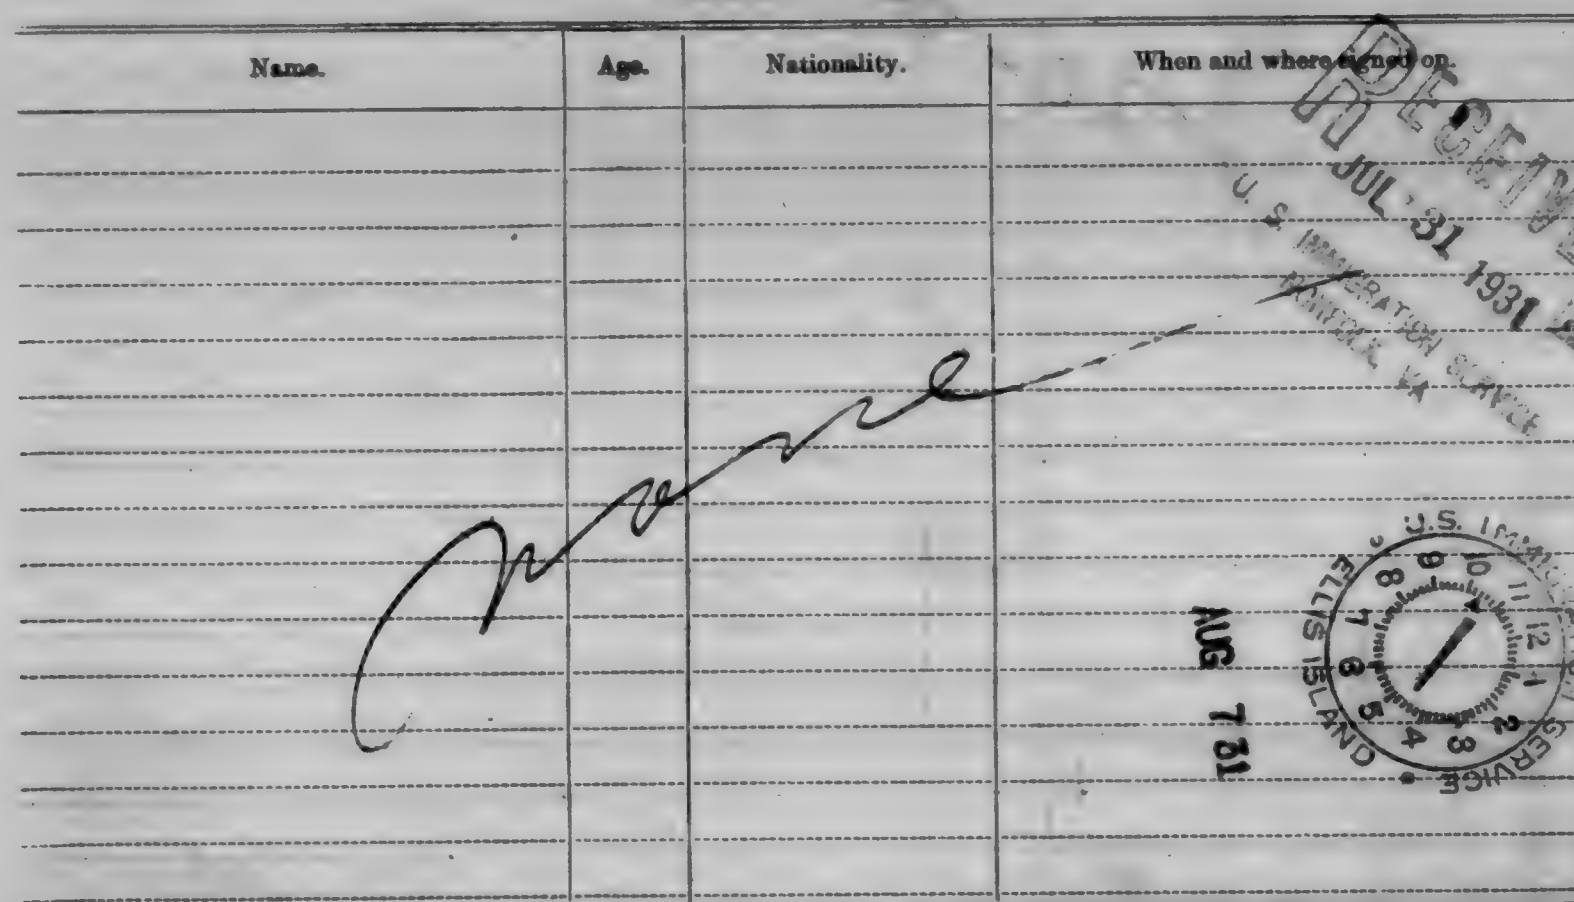 Name. Age. Nationality. When and where signed on.
RECEIVE
JUL 31 1931
U. S. IMMIGRATION SERVICE
NORFOLK, VA
None
U.S. IMMIGRATION SERVICE
ELLIS ISLAND
9 10 11 12 1 2 3 4 5 6 7 8
AUG 7 31